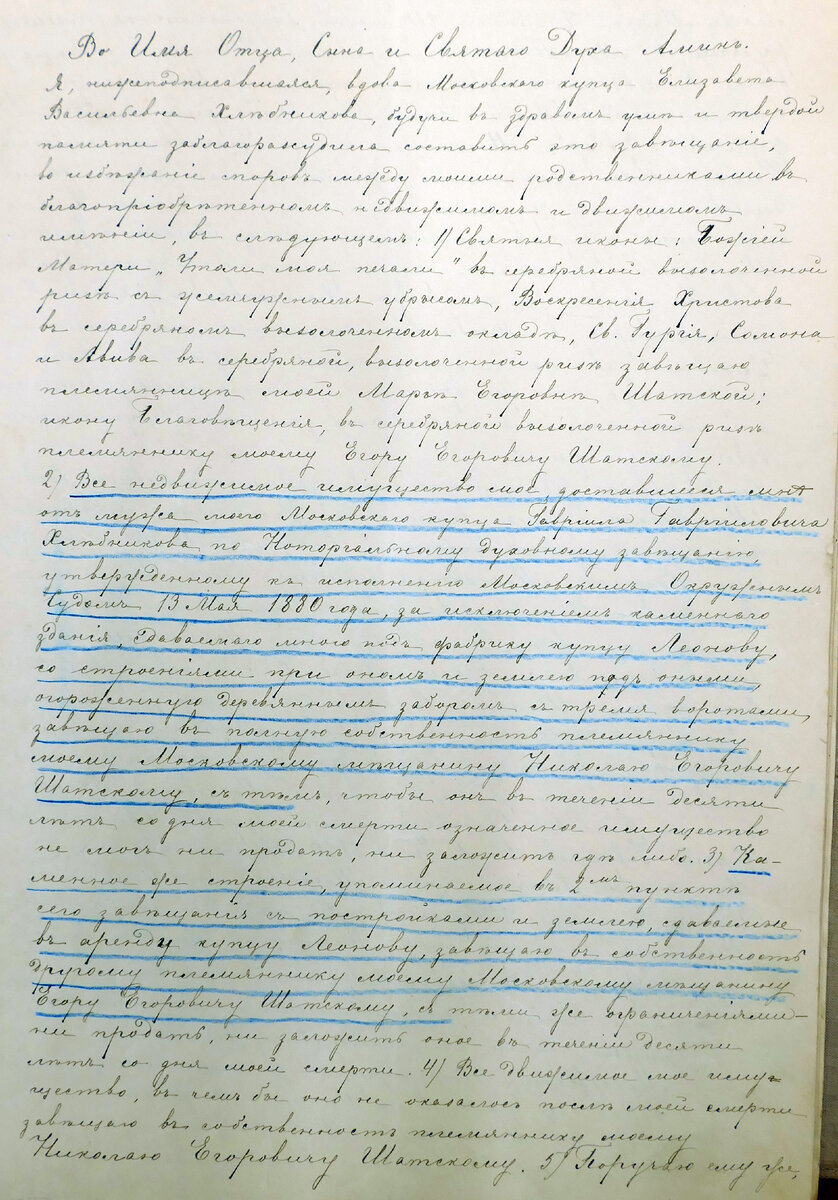 Во Имя Отца, Сына и Святаго Духа Аминь.
Я, нижеподписавшаяся, вдова Московскаго купца Елизавета
Васильевна Хлѣбникова, будучи въ здравомъ умѣ и твердой
памяти заблагоразсудила составить это завѣщаніе,
во избѣжаніе споровъ между моими родственниками въ
благопріобрѣтенномъ недвижимомъ и движимомъ
имѣніи, въ слѣдующемъ: 1) Святыя иконы: Божіей
Матери „Утоли моя печали" въ серебряной вызолоченной
ризѣ съ жемчужнымъ убрусомъ, Воскресенія Христова
въ серебряномъ вызолоченномъ окладѣ, Св. Гурія, Самона
и Авива въ серебряной, вызолоченной ризѣ завѣщаю
племянницѣ моей Марьѣ Егоровнѣ Шатской;
икону Благовѣщенія, въ серебряной вызолоченной ризѣ
племяннику моему Егору Егоровичу Шатскому.
2) Все недвижимое имущество мое, доставшееся мнѣ
отъ мужа моего Московскаго купца Гавріила Гавріиловича
Хлѣбникова по Нотаріальному духовному завѣщанію,
утвержденному къ исполненію Московскимъ Окружнымъ
Судомъ 13 Мая 1880 года, за исключеніемъ каменнаго
зданія, сдаваемаго мною подъ фабрику купцу Леонову,
со строеніями при ономъ и землею подъ оными,
огороженную деревяннымъ заборомъ съ тремя воротами,
завѣщаю въ полную собственность племяннику
моему Московскому мѣщанину Николаю Егоровичу
Шатскому, съ тѣмъ, чтобы онъ въ теченіи десяти
лѣтъ со дня моей смерти означенное имущество
не могъ ни продать, ни заложить гдѣ либо. 3) Ка-
менное же строеніе, упоминаемое въ 2мъ пунктѣ
сего завѣщанія съ постройками и землею, сдаваемые
въ аренду купцу Леонову, завѣщаю въ собственность
другому племяннику моему Московскому мѣщанину
Егору Егоровичу Шатскому, съ тѣми же ограниченіями–
ни продать, ни заложить оное въ теченіи десяти
лѣтъ со дня моей смерти. 4) Все движимое мое иму-
щество, въ чемъ бы оно не оказалось послѣ моей смерти
завѣщаю въ собственность племяннику моему
Николаю Егоровичу Шатскому. 5) Поручаю ему же,